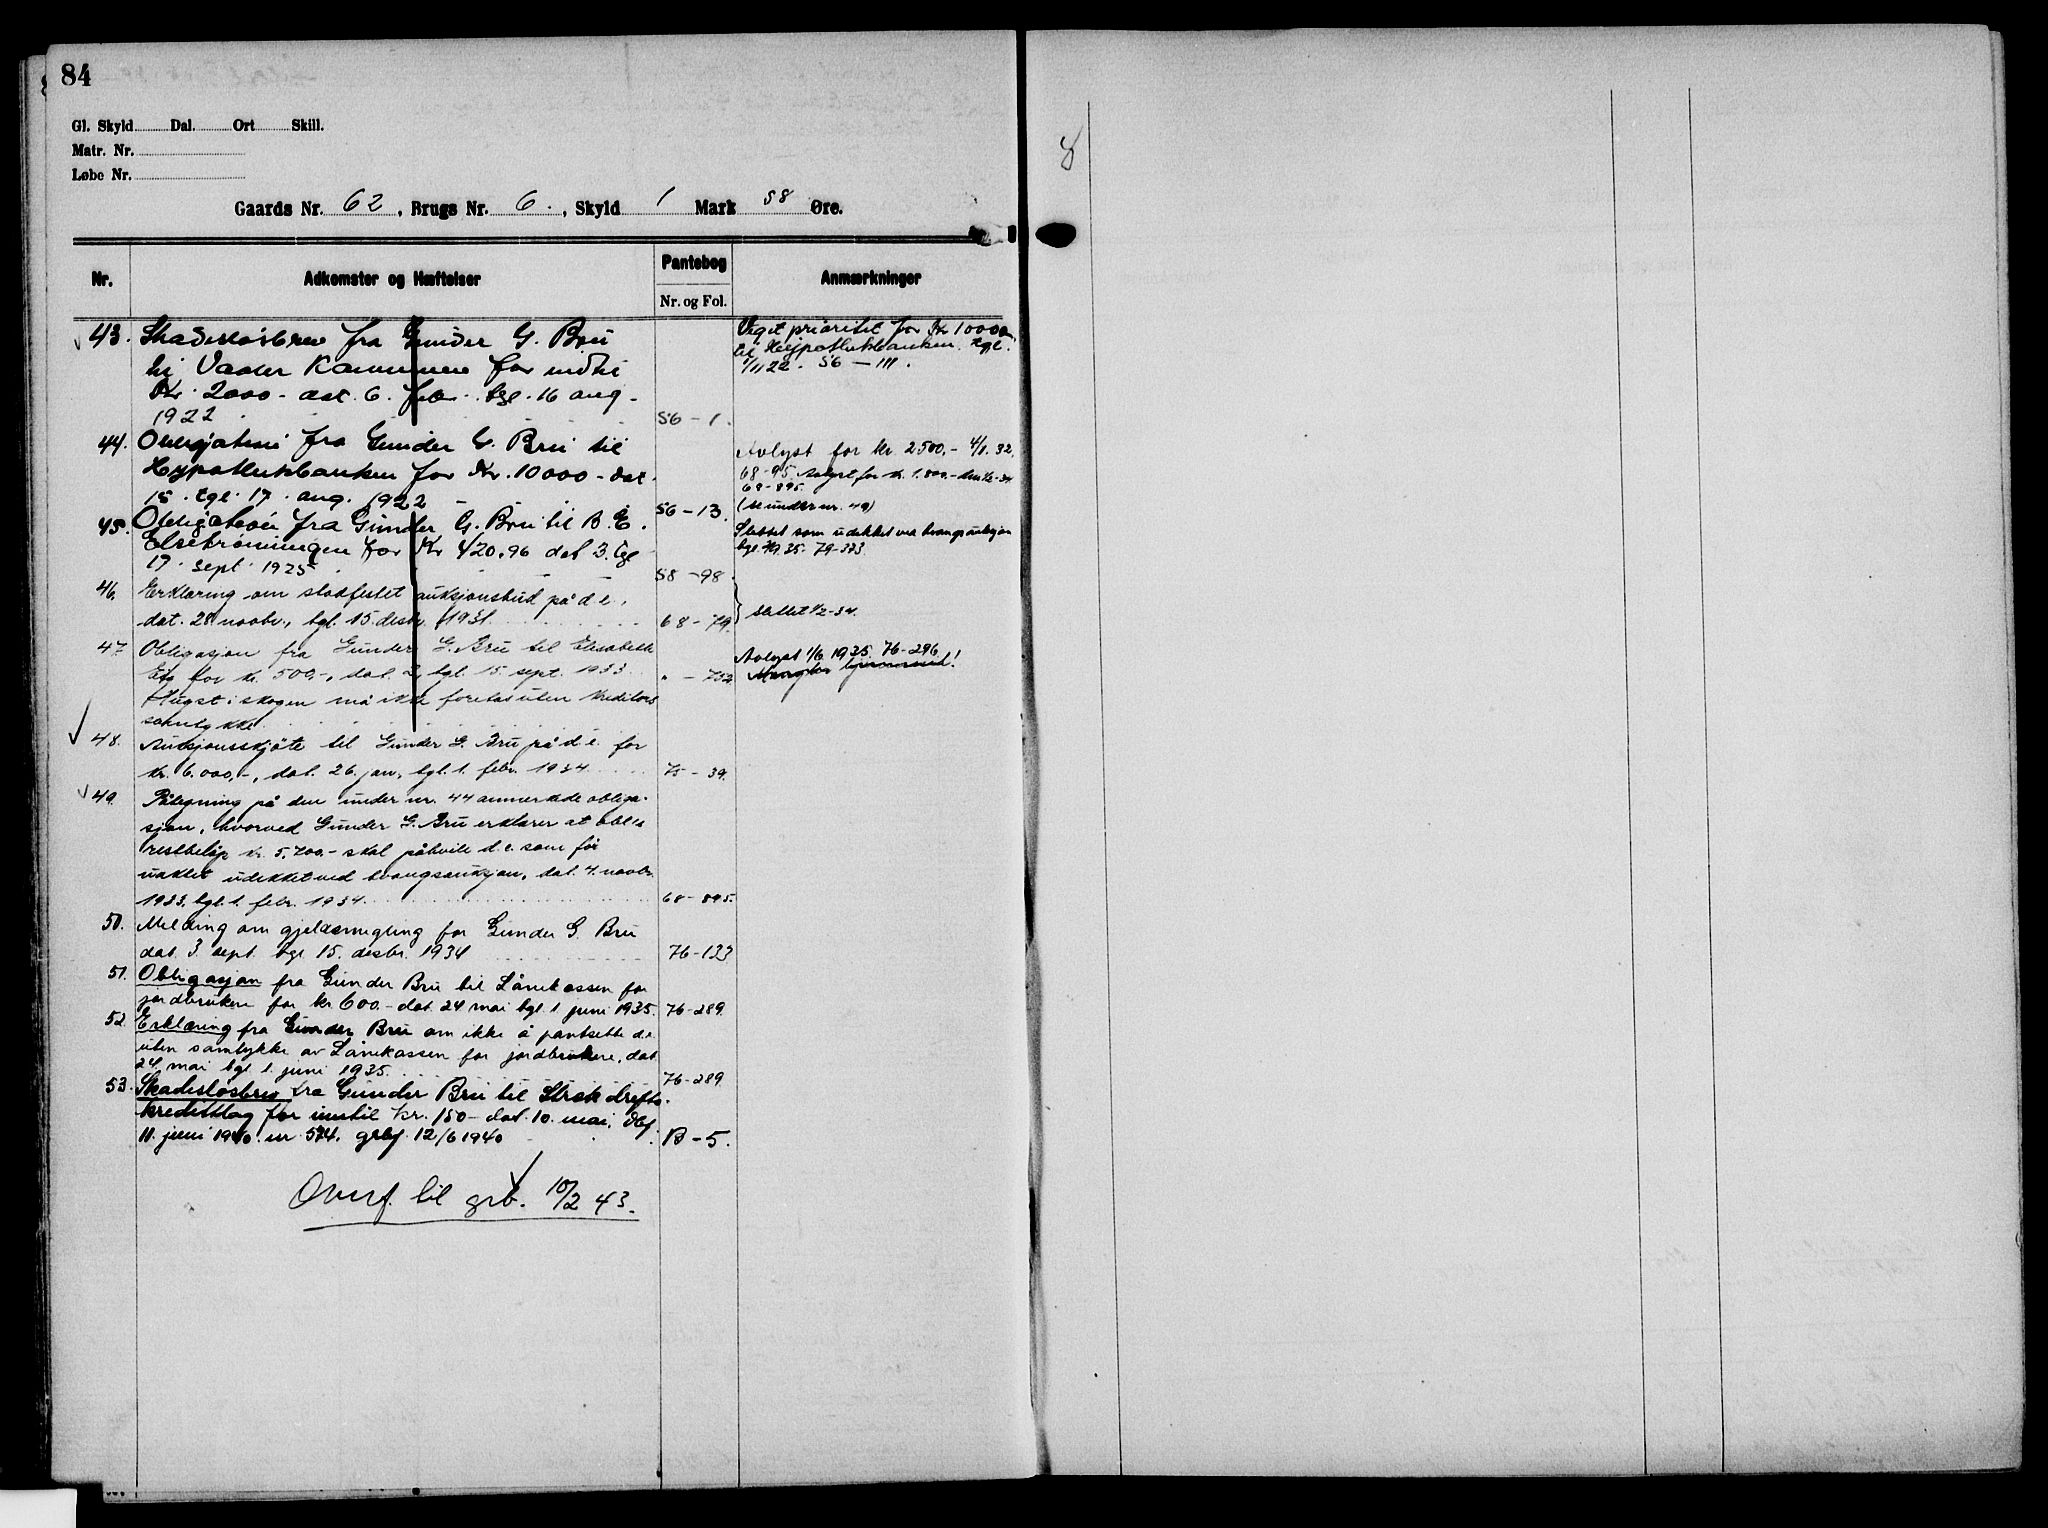 84
Gl. Skyld Dal. Ort Skill.
Matr. Nr.
Løbe Nr.
Gaards Nr. 62, Brugs Nr. 6., Skyld 1 Mark 58 Øre.
Nr. Adkomster og Hæftelser Pantebog Anmærkninger
Nr. og Fol.
43. Skadesløsbrev fra Gunder G. Bru
til Vaaler Kommune for indtil
Kr. 2000 - dat. 6. febr. tgl. 16 aug.
1922 56 - 1.
Veget prioritet for Kr 10000
til Hypothekbanken. tgl.
1/11 22. 56 - 111.
44. Obligation fra Gunder G. Bru til
Hypothekbanken for Kr. 10000 - dat.
15. tgl. 17. aug. 1922 56 - 13.
Avlyst for kr. 2500,- 4/1. 32.
68-95. Avlyst for kr. 1.800,-
68-895.
(se under nr. 49)
45. Obligation fra Gunder G. Bru til B. E.
for Kr 420,96 dat 3. tgl
17. sept. 1925 58 - 98.
Slettet som udekket ved tvangsauksjon
79-323
46. Erklæring om stadfestet auksjonsbud på d. e.,
dat. 28. novbr., tgl. 15. desbr. 1931. 68 - 79.
slettet 1/2-34.
47. Obligasjon fra Gunder G. Bru til Elisabeth
for kr. 500,-, dat. 2, tgl. 15. sept. 1933 " - 752
Hugst i skogen må ikke foretas uten kreditors
samtykke.
Avlyst 1/6 1935. 76-296.
48. Auksjonsskjøte til Gunder G. Bru på d. e. for
kr. 6.000,-, dat. 26. jan., tgl. 1. febr. 1934 75 - 39.
49. Påtegning på den under nr. 44 anmerkede obliga-
sjon, hvorved Gunder G. Bru erklærer at obl.s
restbeløp kr. 5.700,- skal påhvile d. e. som før
uaktet udekket ved tvangsauksjon, dat. 4. novbr.
1933, tgl. 1. febr. 1934 68 - 895.
50. Melding om gjeldsmegling for Gunder G. Bru
dat. 3. sept. tgl 15. desbr. 1934 76-133
51. Obligasjon fra Gunder Bru til Lånekassen for
jordbrukere for kr 600.- dat. 24 mai tgl 1 juni 1935. 76-289.
52. Erklæring fra Gunder Bru om ikke å pantsette d.e.
uten samtykke av Lånekassen for jordbrukere, dat.
24. mai tgl 1. juni 1935. 76-289
53. Skadesløsbrev fra Gunder Bru til Strøk drifts-
kredittlag for inntil kr. 150 - dat. 10. mai, dbf
11. juni 1940. nr 574. grbf. 12/6 1940 B - 5.
Overf. til grb. 10/2 43.
8